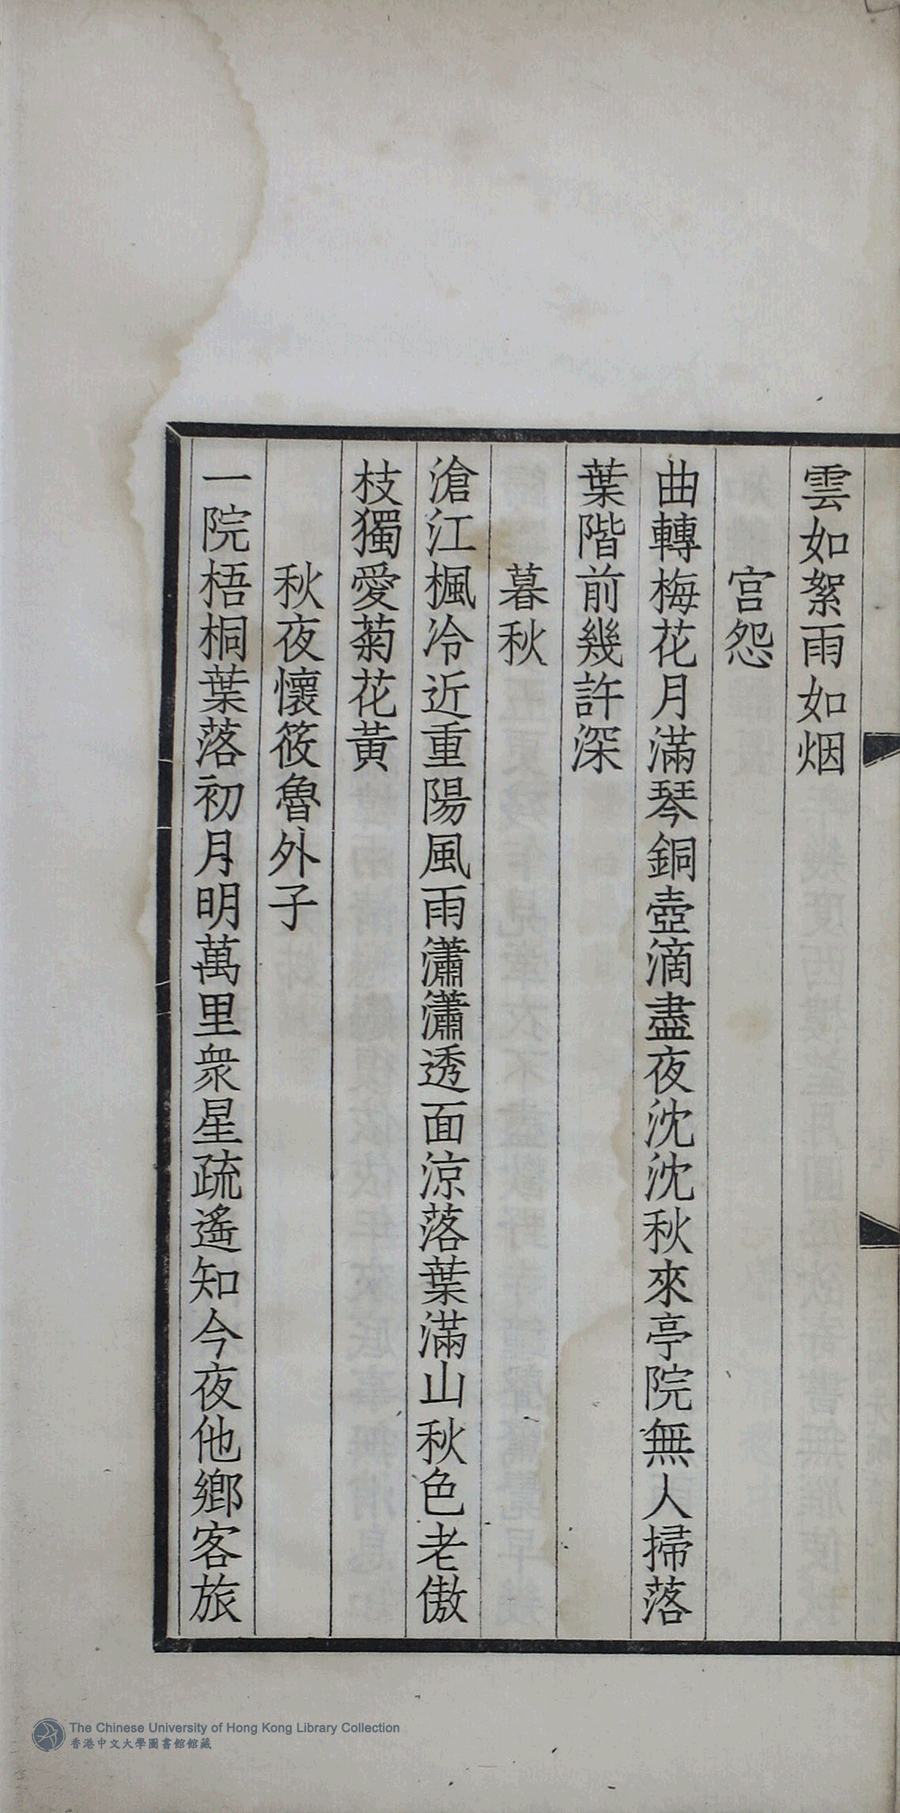 雲如絮雨如烟
宫怨
曲轉梅花月滿琴銅壺滴盡夜沈沈秋來亭院無人掃落
葉階前幾許深
暮秋
滄江楓冷近重陽風雨瀟瀟透面涼落葉滿山秋色老傲
枝獨愛菊花黃
秋夜懷筱魯外子
一院梧桐葉落初月明萬里衆星疏遙知今夜他鄉客旅
The Chinese University of Hong Kong Library Collection
香港中文大學圖書館館藏